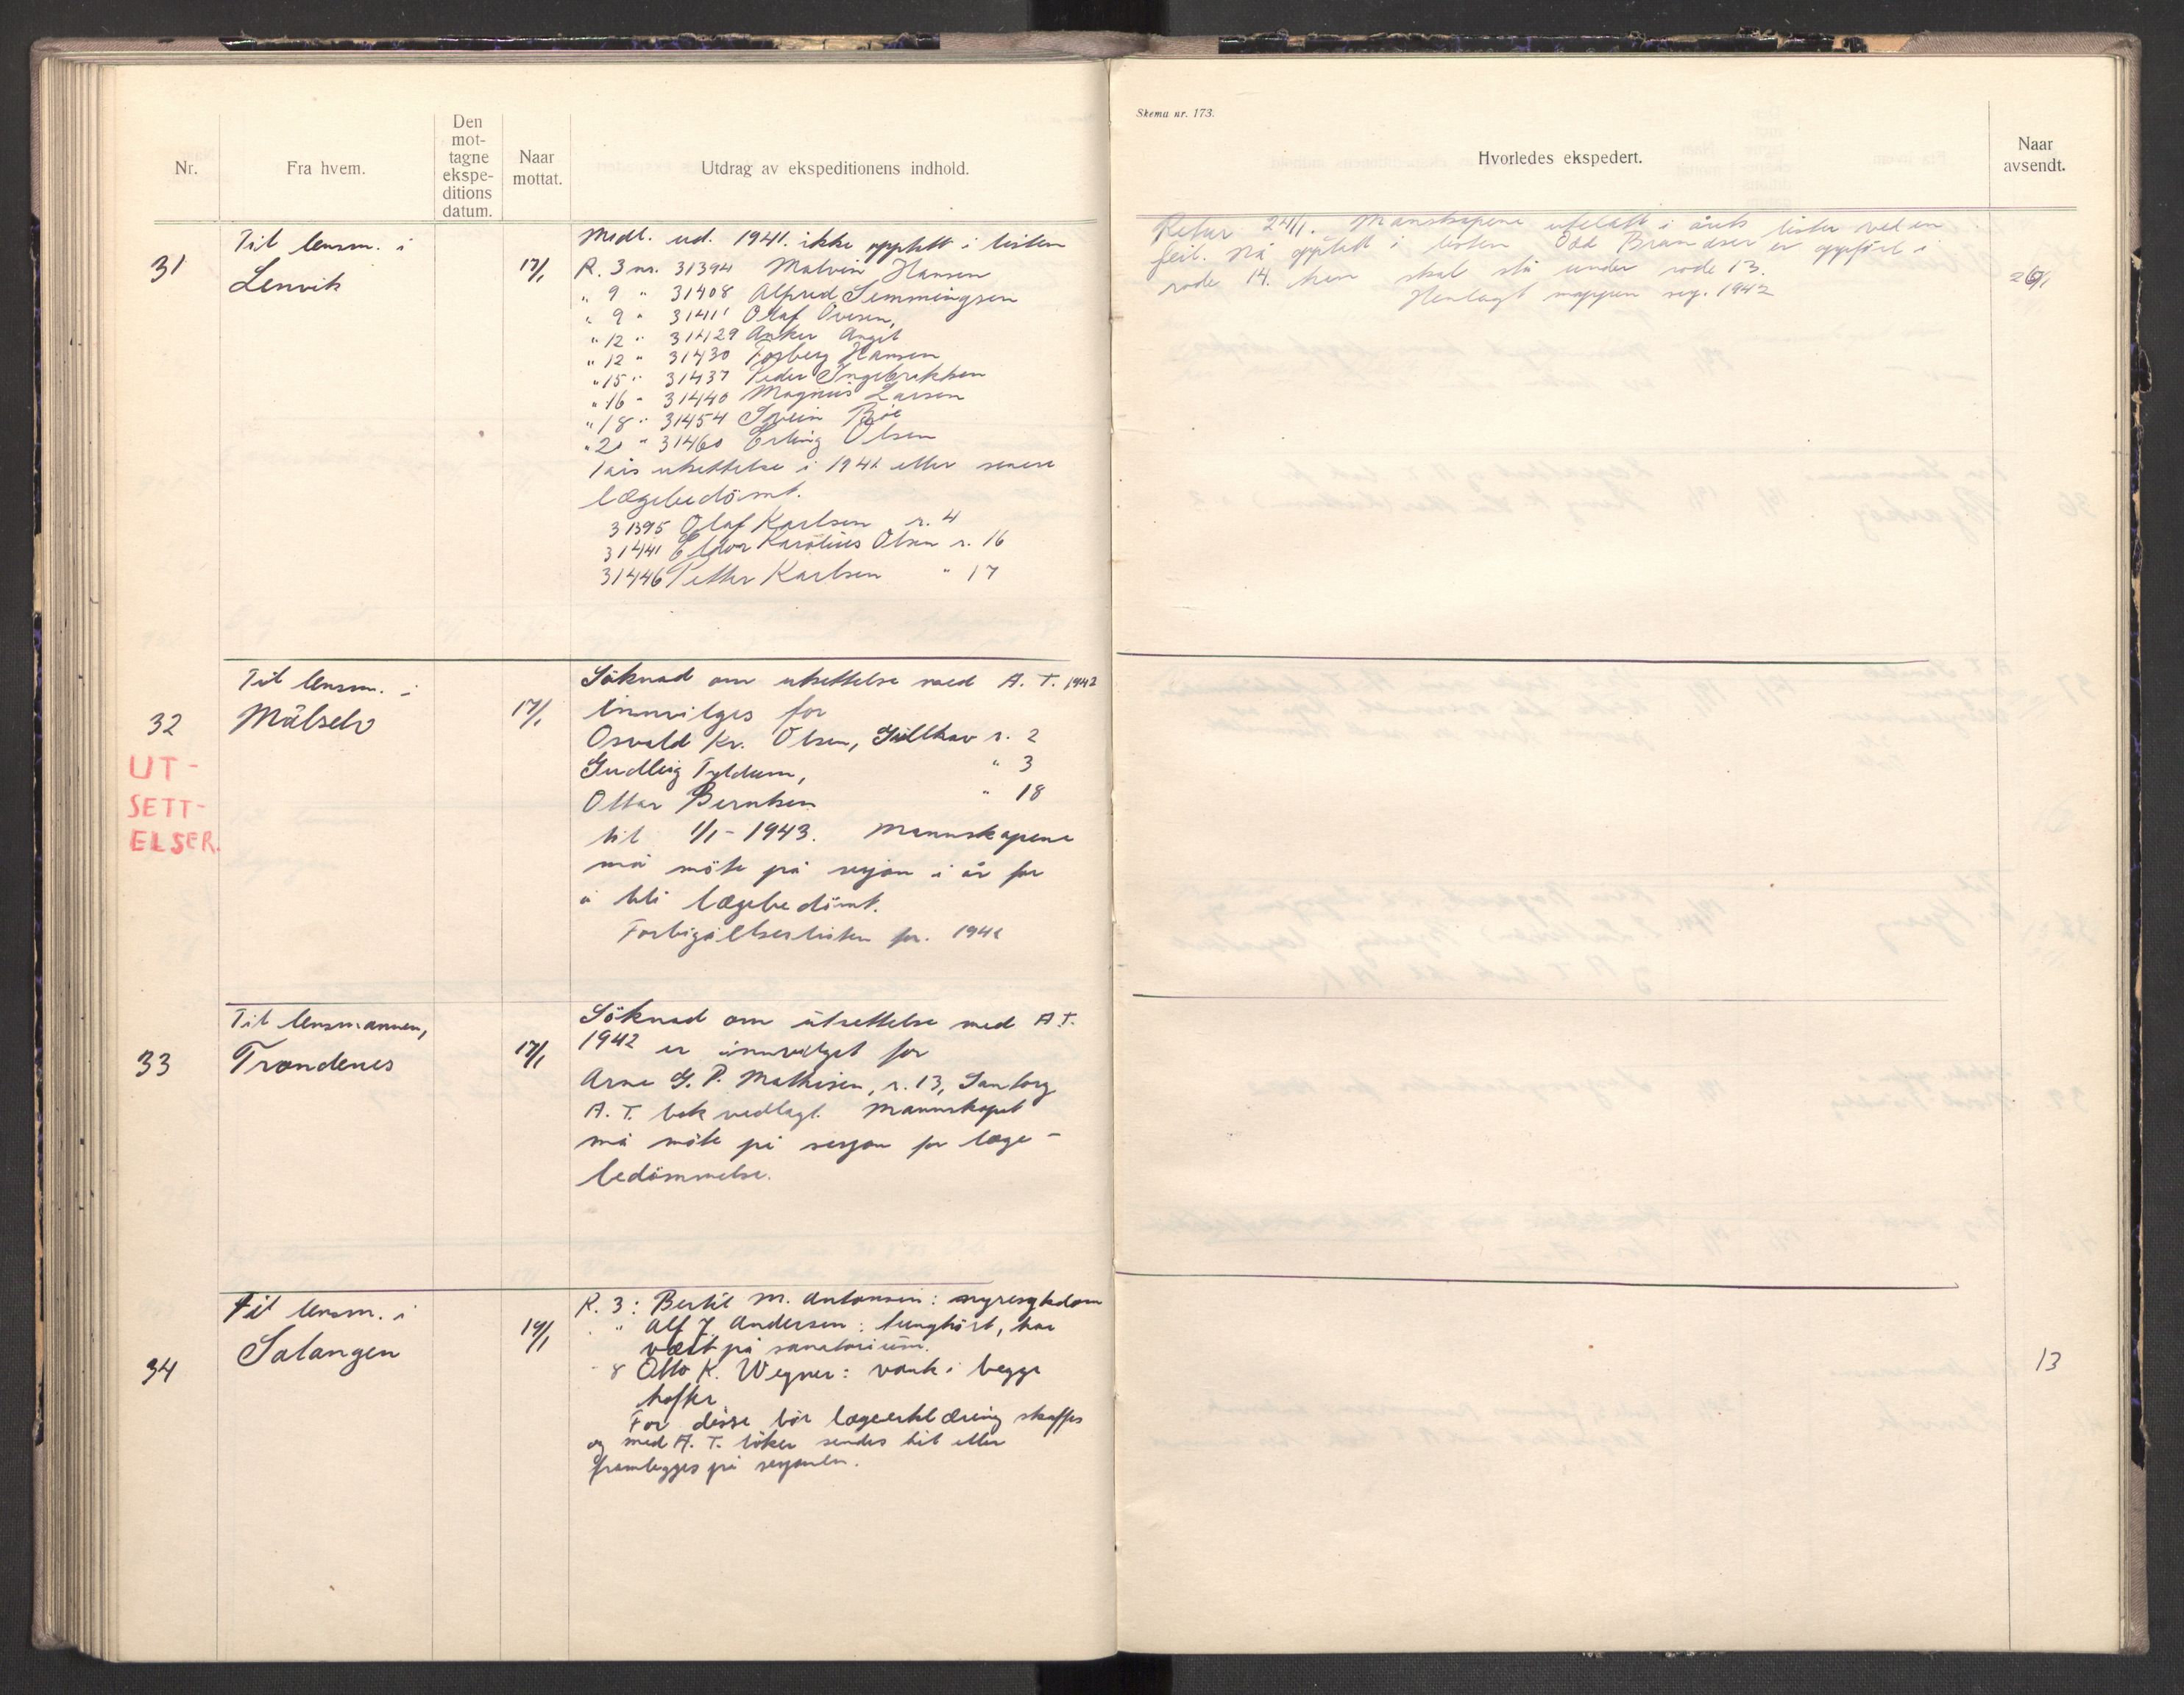 Nr.
Fra hvem.
Den
mot-
tagne
ekspe-
ditions
datum.
Naar
mottat.
Utdrag av ekspeditionens indhold.
31
Til lensm. i
Lenvik
17/1
Midl. ud. 1941. ikke opptatt i listen
R. 3 nr. 31394 Malvin Hansen
" 9 " 31408 Alfred Semmingsen
" 9 " 31411 Olaf Ovesen,
" 12 " 31429 Anker Angel
" 12 " 31430 Torberg Hansen
" 15 " 31437 Peder Ingebriktsen
" 16 " 31440 Magnus Larsen
" 18 " 31454 Svein Böe
" 20 " 31460 Erling Olsen
utsettelse i 1941 eller senere
lægebedömt.
31395 Olaf Karlsen r. 4
31441 Karolius Olsen r. 16
31446 Petter Karlsen " 17
32
UT-
SETT-
ELSER.
Til lensm. i
Målselv
17/1
Söknad om utsettelse med A. T. 1942
innvilges for
Osvald Kr. Olsen, Gullhav r. 2
Gudleig Tyldum, " 3
Ottar Berntsen " 18
til 1/1 - 1943. Mannskapene
må möte på sesjon i år for
å bli lægebedömt.
Forbigåelseslisten for 1942
33
Til lensmannen,
Trondenes
17/1
Söknad om utsettelse med A.T.
1942 er innvilget for
Arne G. P. Mathisen, r. 13, Santorg
A. T. bok vedlagt. Mannskapet
må möte på sesjon for læge-
bedömmelse.
34
Til lensm. i
Salangen
19/1
R. 3: Bertil M. Antonsen: nyresykdom
" Alf J. Andersen: tunghört, har
vært på sanatorium.
" 8 Otto K. Wegner: vank i begge
hofter.
For disse bör lægeerklæring skaffes
og med A. T. böker sendes hit eller
fremlegges på sesjonen.
Skema nr. 173.
Hvorledes ekspedert.
Naar
avsendt.
Retur 24/1. Manskapene utelatt i årets lister ved en
feil. Nå opptatt i listen Odd Brandser er oppfört i
rode 14. han skal stå under rode 13.
Henlagt mappen seg. 1942
26/1
13